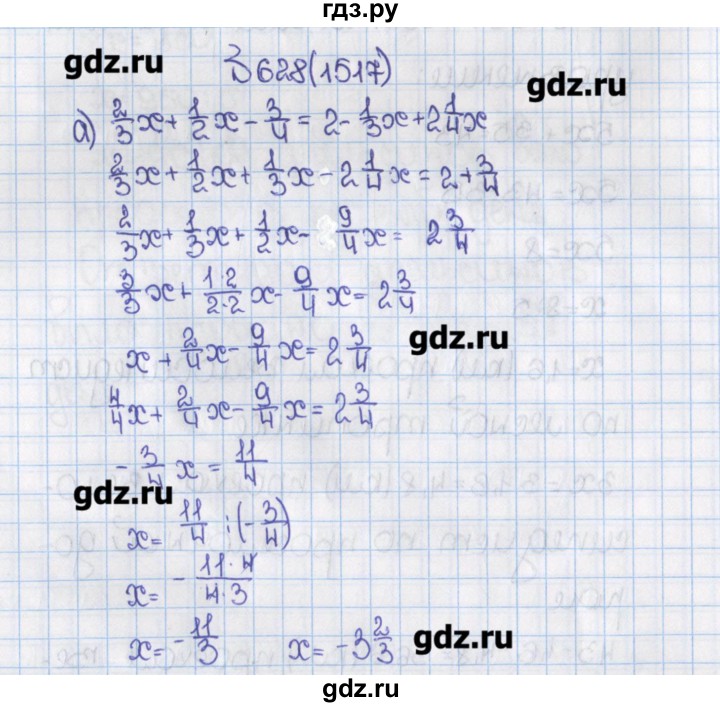 гдз.ру
gdz.ru
З 628(1517)
gdz.ru
а) 2/3 x + 1/2 x - 3/4 = 2 - 1/3 x + 2 1/4 x
2/3 x + 1/2 x + 1/3 x - 2 1/4 x = 2 + 3/4
2/3 x + 1/3 x + 1/2 x - 9/4 x = 2 3/4
3/3 x + 1·2/2·2 x - 9/4 x = 2 3/4
gdz.ru
x + 2/4 x - 9/4 x = 2 3/4
4/4 x + 2/4 x - 9/4 x = 2 3/4
- 3/4 x = 11/4
gdz.ru
x = 11/4 : (- 3/4)
x = - 11·4/4·3
x = - 11/3 x = -3 2/3
gdz.ru
gdz.ru